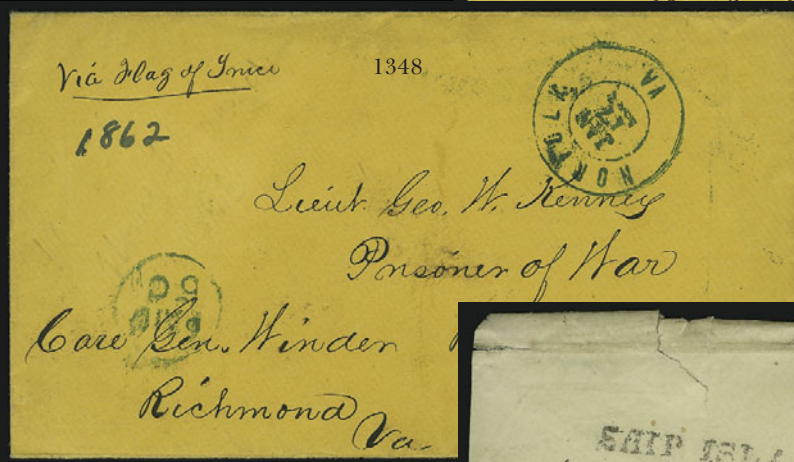 1348
Via Flag of Truce
1862
NORFOLK VA
JAN
Lieut. Geo. W. Kenney
Prisoner of War
PAID
5 C
Care Gen. Winder
Richmond
Va
SHIP ISLA